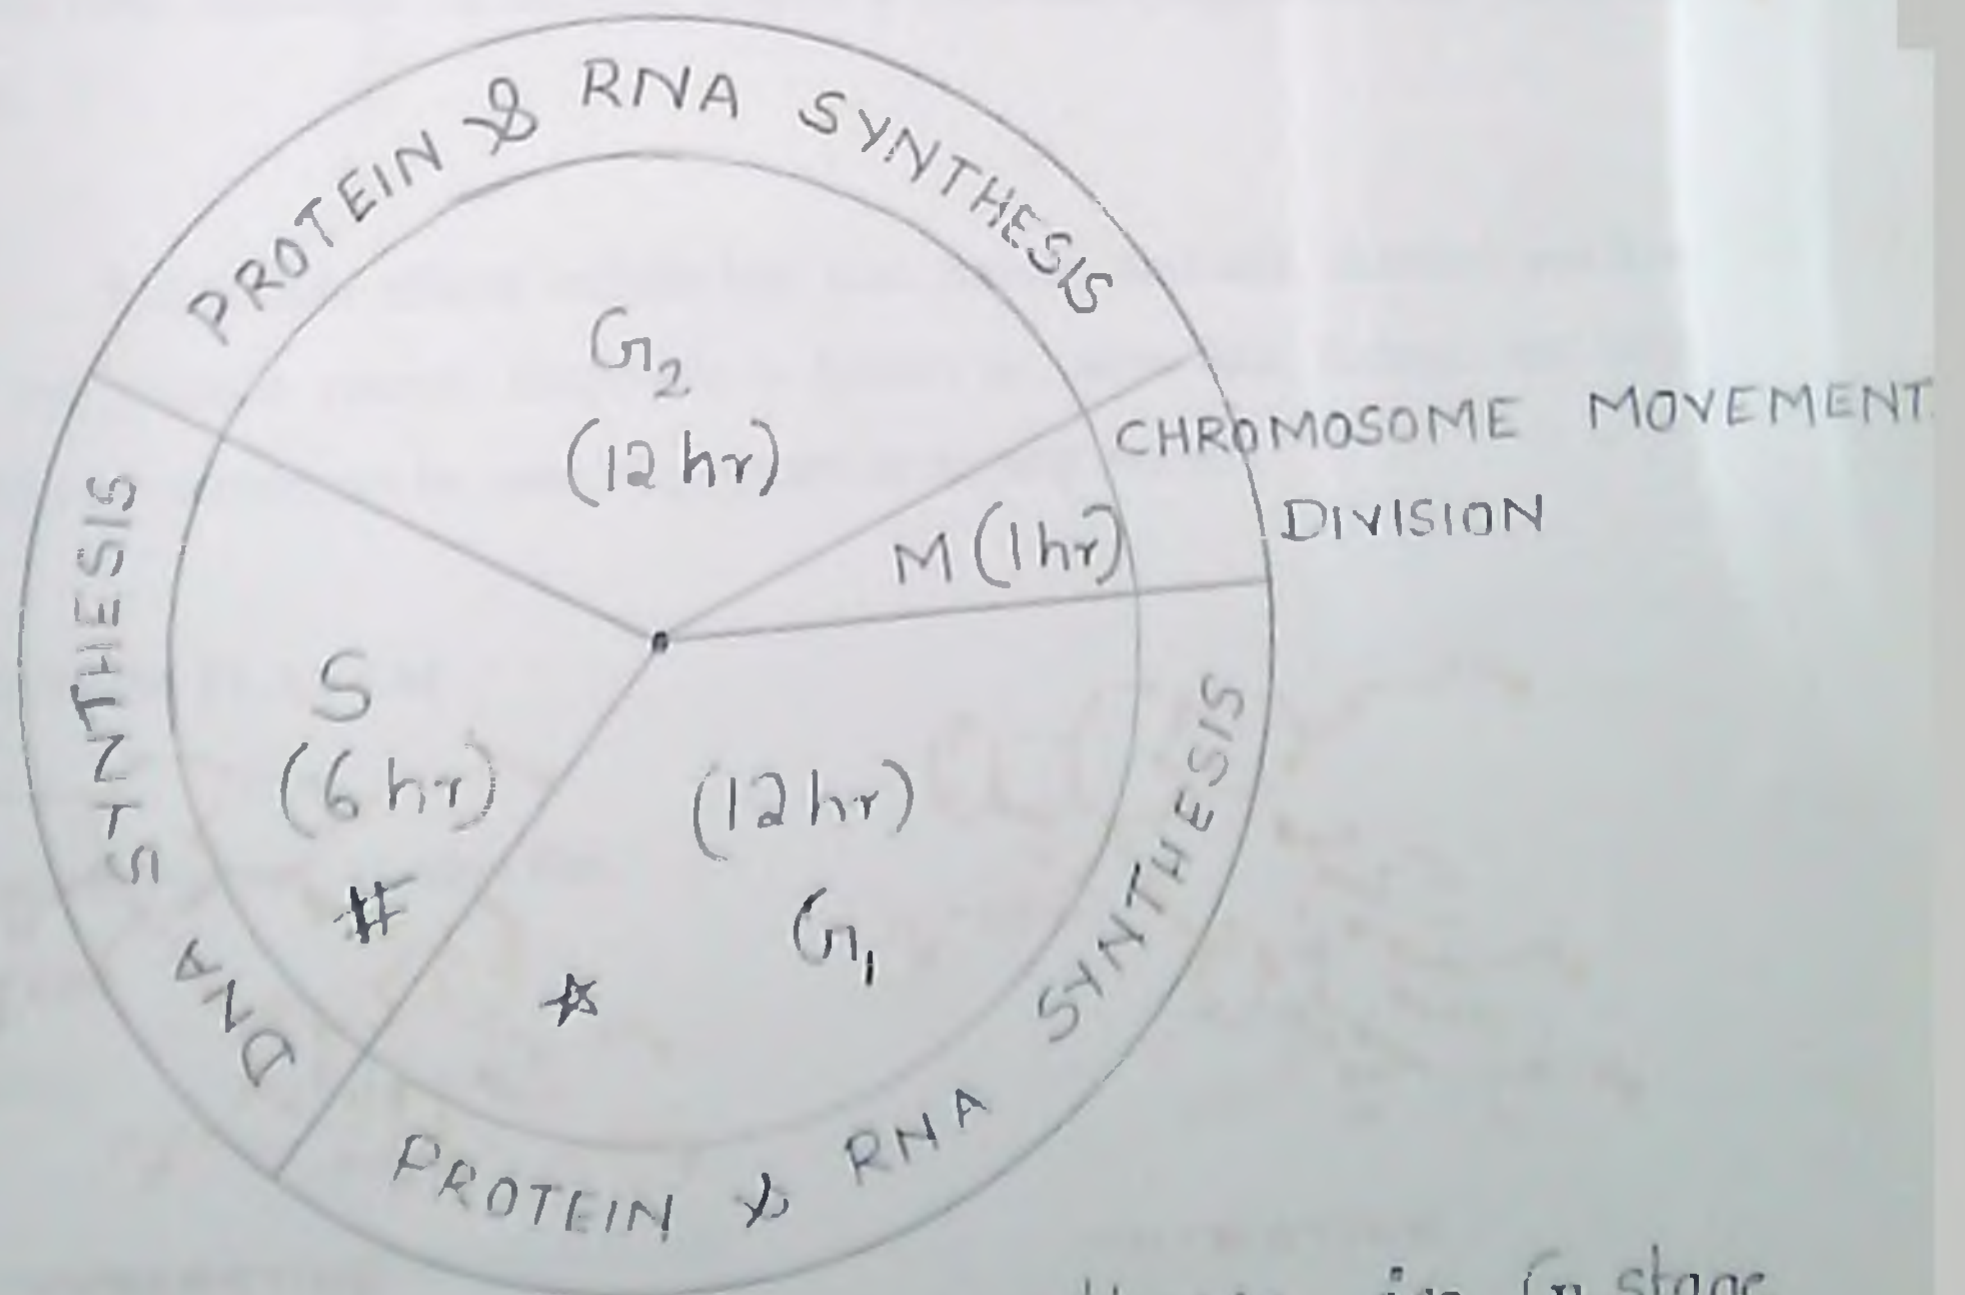 PROTEIN & RNA SYNTHESIS
G2
(12 hr)
CHROMOSOME MOVEMENT
DIVISION
M (1 hr)
DNA SYNTHESIS
S
(6 hr)
#
(12 hr)
G1
☆
PROTEIN & RNA SYNTHESIS
in G1 stage